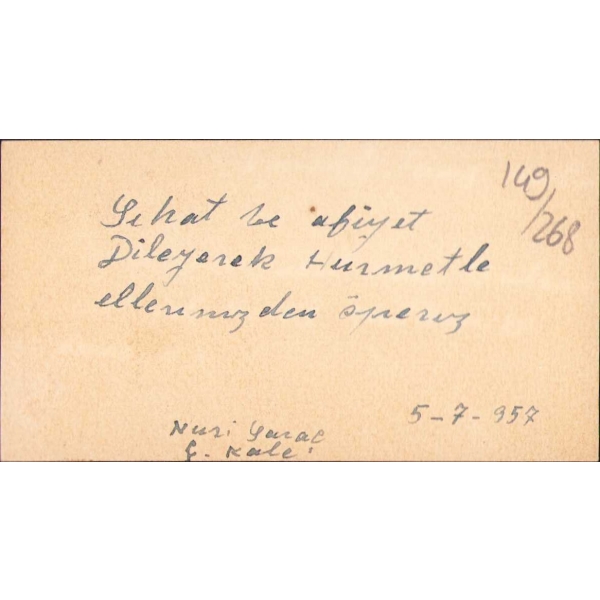 149/268
Sıhat ve afiyet
Dileyerek Hürmetle
ellerınızden öperız
5-7-957
Nuri Saraç
Ç. Kale